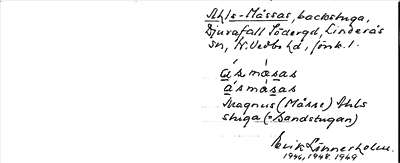 Åhls-Måssas, backstuga,
Djurafall Södergd, Linderås
sn, N. Vedbo hd, Jönk. l.
a̱s mas̱as
a̱s mas̱as
Magnus (Måsse) Åhls
stuga (= Sandstugan)
Erik Linnerholm.
1946, 1948, 1949